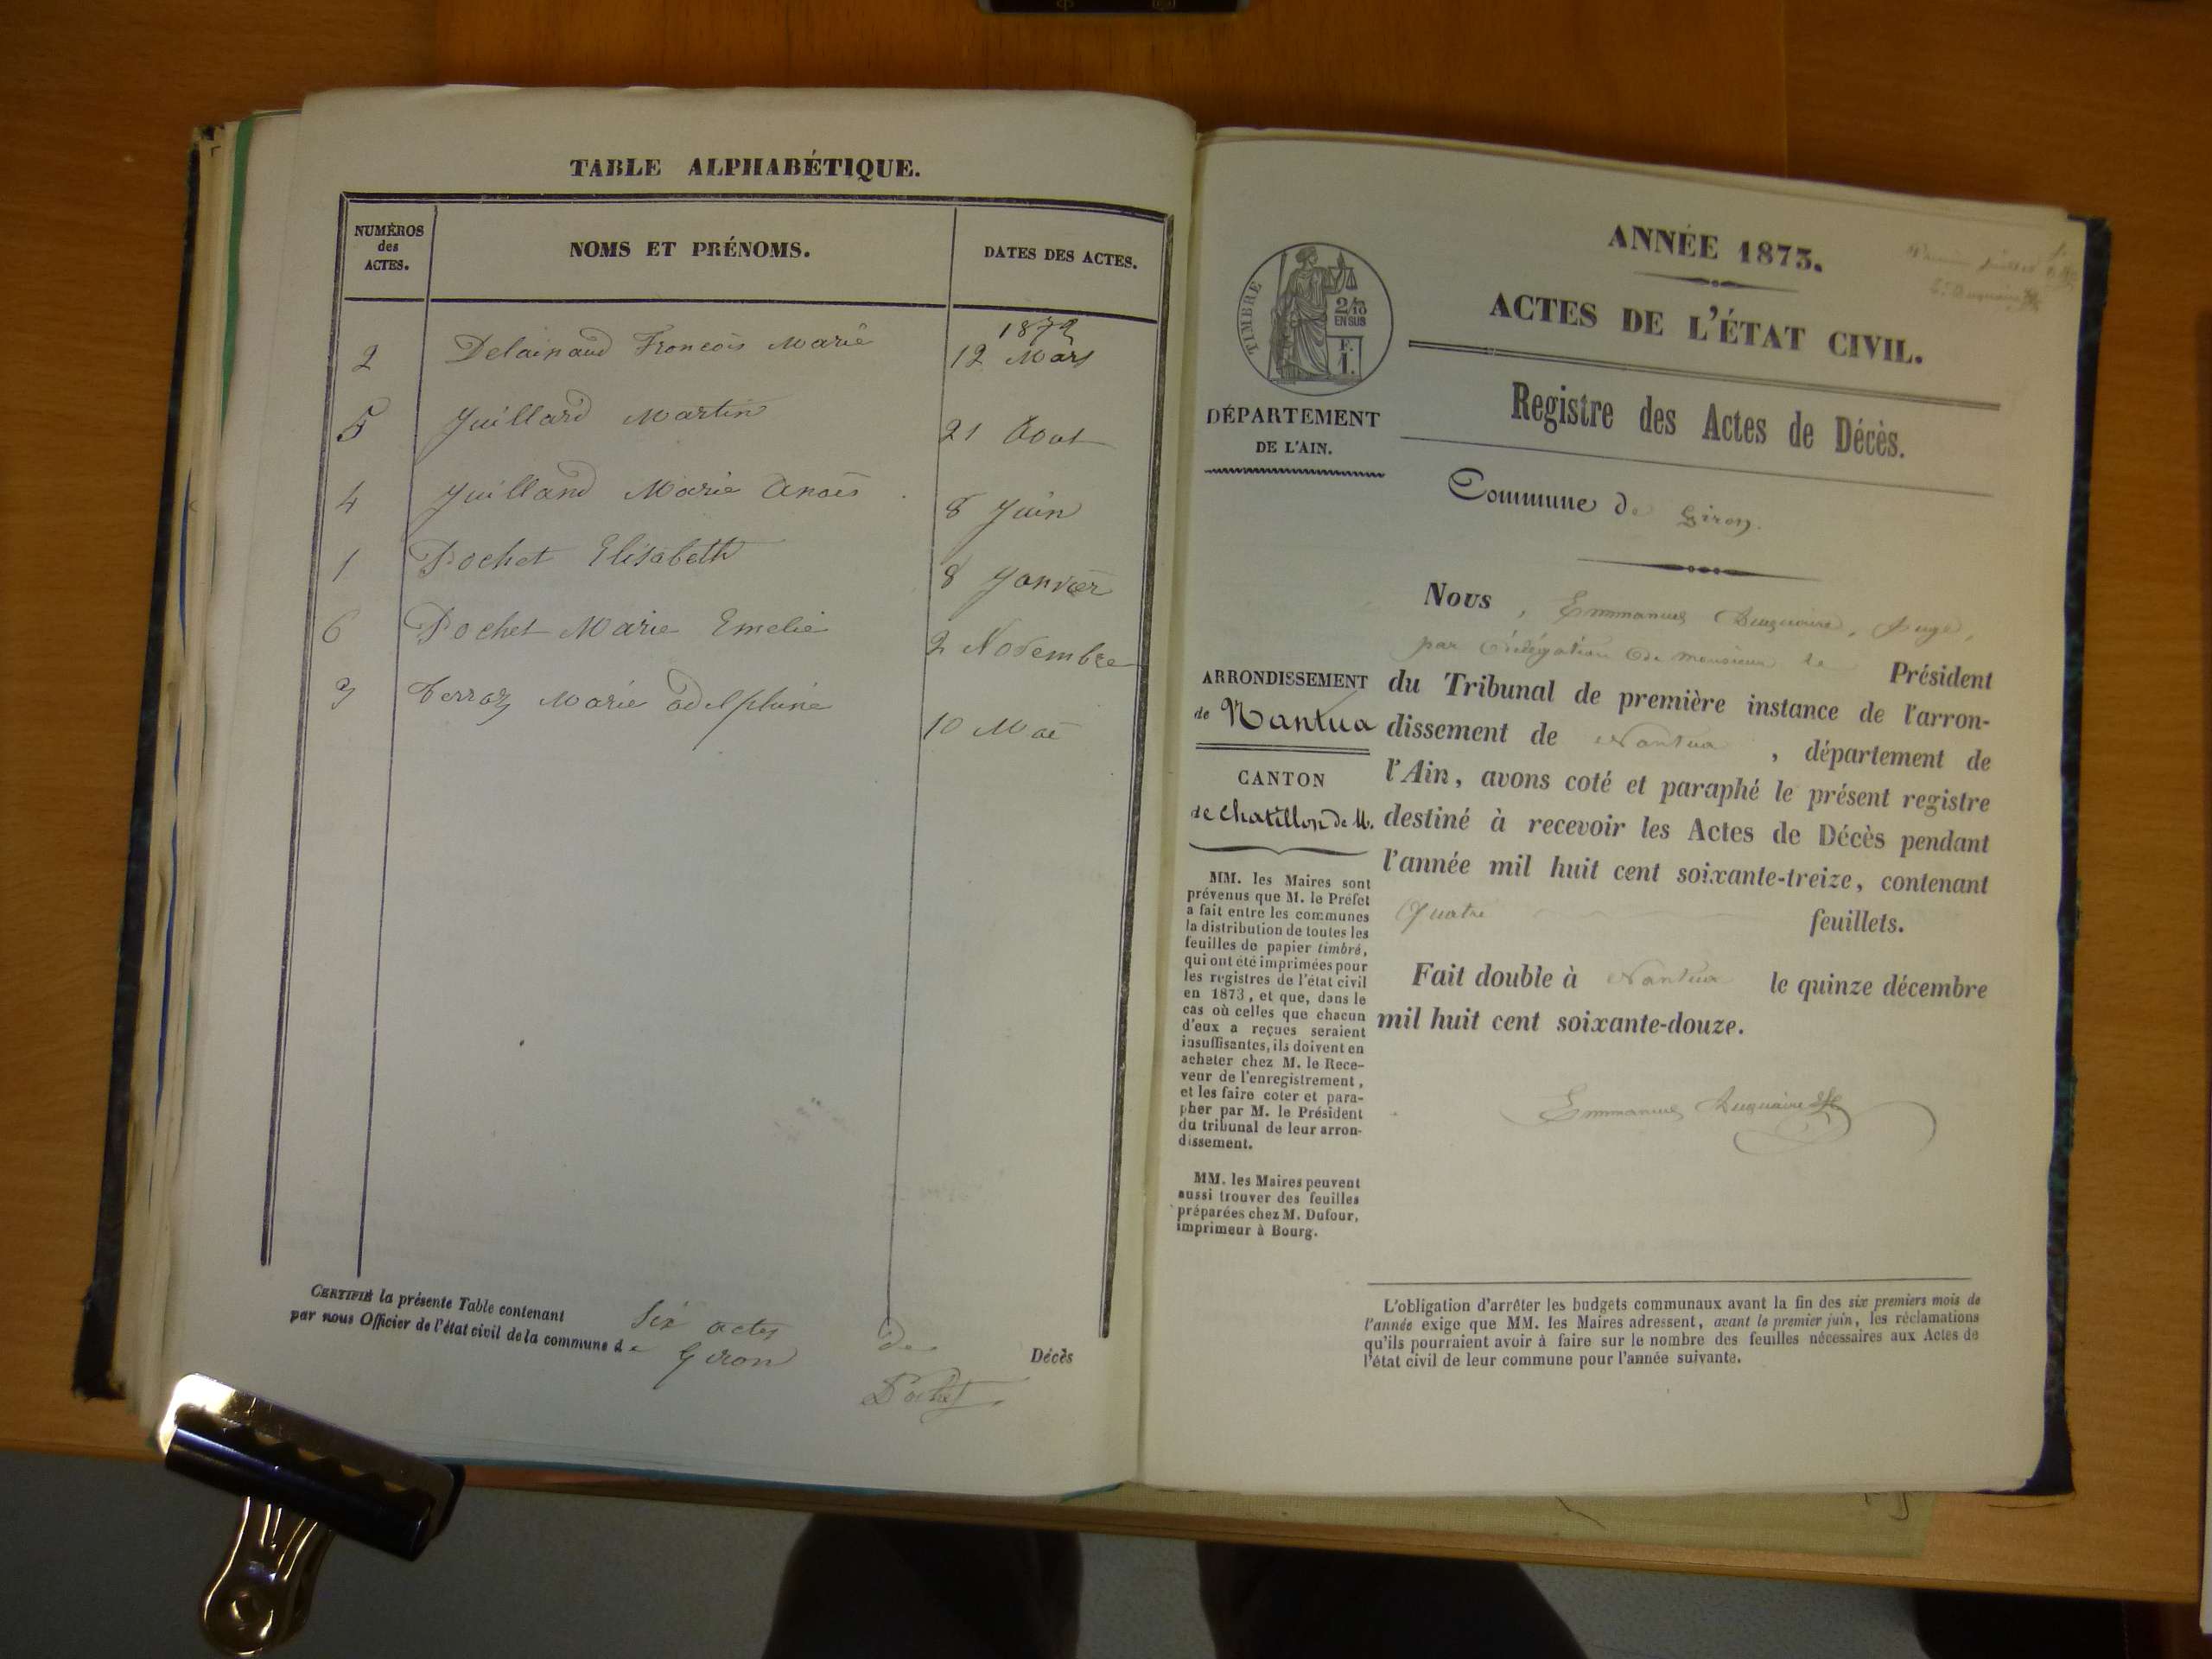 TABLE ALPHABÉTIQUE.
NUMÉROS
des
ACTES.
NOMS ET PRÉNOMS.
DATES DES ACTES.
1872
2 Delainaud Francois Marie 12 Mars
5 Juillard Martin 21 Aout
4 Juilland Marie Anaïs 8 Juin
1 Pochet Elisabeth 8 Janvier
6 Pochet Marie Emelie 2 Novembre
3 Terraz Marie adelphine 10 Mai
CERTIFIÉ la présente Table contenant Six actes de Décès
par nous Officier de l'état civil de la commune de Giron
Pochet
TIMBRE
2/10
EN SUS
F.
1.
DÉPARTEMENT
DE L'AIN.
ARRONDISSEMENT
de Nantua
CANTON
de Chatillon de M.
MM. les Maires sont
prévenus que M. le Préfet
a fait entre les communes
la distribution de toutes les
feuilles de papier timbré,
qui ont été imprimées pour
les registres de l'état civil
en 1873, et que, dans le
cas où celles que chacun
d'eux a reçues seraient
insuffisantes, ils doivent en
acheter chez M. le Rece-
veur de l'enregistrement,
et les faire coter et para-
pher par M. le Président
du tribunal de leur arron-
dissement.
MM. les Maires peuvent
aussi trouver des feuilles
préparées chez M. Dufour,
imprimeur à Bourg.
ANNÉE 1873.
ACTES DE L'ÉTAT CIVIL.
Registre des Actes de Décès.
Commune de Giron.
Nous, Emmanuel Duquaire, Juge,
par délégation de monsieur le Président
du Tribunal de première instance de l'arron-
dissement de Nantua, département de
l'Ain, avons coté et paraphé le présent registre
destiné à recevoir les Actes de Décès pendant
l'année mil huit cent soixante-treize, contenant
Quatre feuillets.
Fait double à Nantua le quinze décembre
mil huit cent soixante-douze.
Emmanuel Duquaire
L'obligation d'arrêter les budgets communaux avant la fin des six premiers mois de
l'année exige que MM. les Maires adressent, avant le premier juin, les réclamations
qu'ils pourraient avoir à faire sur le nombre des feuilles nécessaires aux Actes de
l'état civil de leur commune pour l'année suivante.